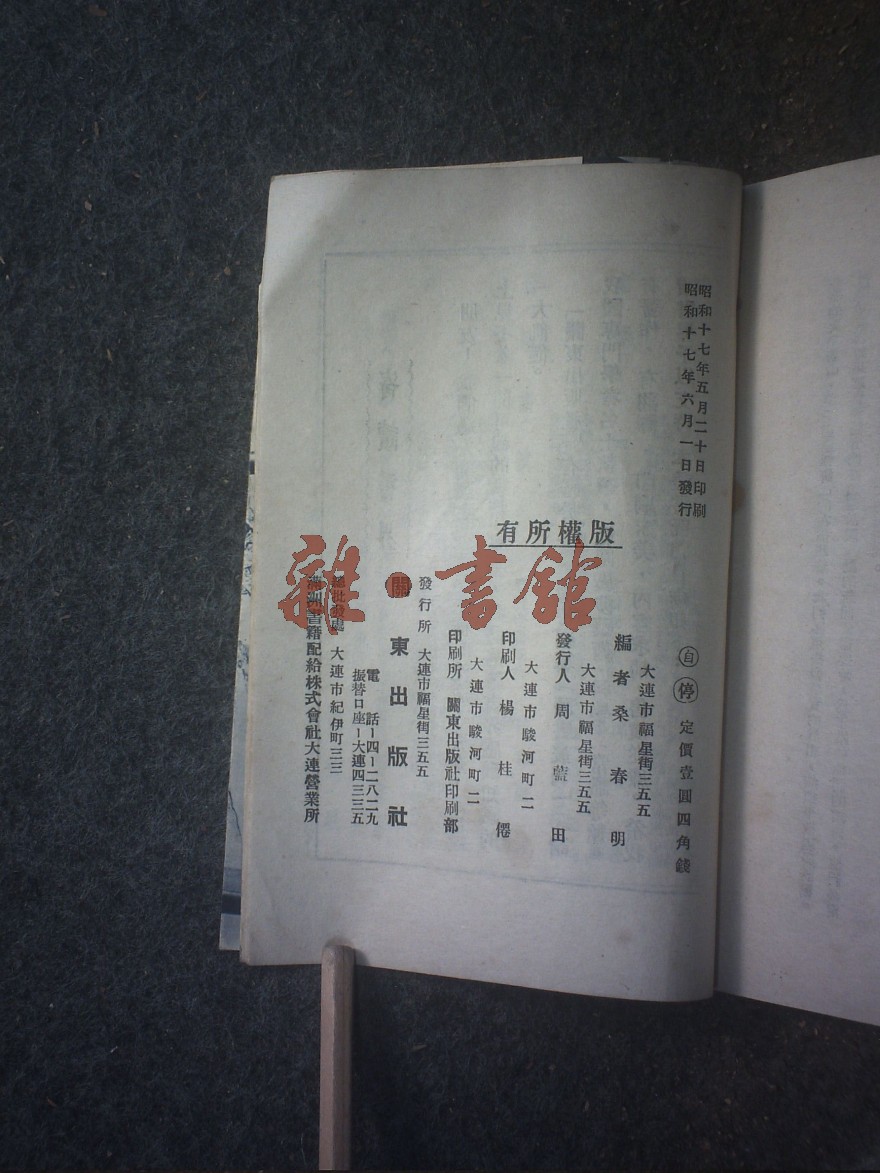 昭和十七年五月二十日印刷
昭和十七年六月一日發行
版權所有
自 停 定價壹圓四角錢
大連市福星街三五五
編者桑春明
大連市福星街三五五
發行人周藍田
大連市駿河町二
印刷人楊桂僊
大連市駿河町二
印刷所 關東出版社印刷部
發行所 大連市福星街三五五
關東出版社
電話–四–二八二九
振替口座–大連四三三五
總批發處 大連市紀伊町三三
滿洲書籍配給株式會社大連營業所
雜·書館